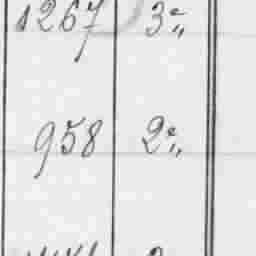 1267 3e„
958 2e„